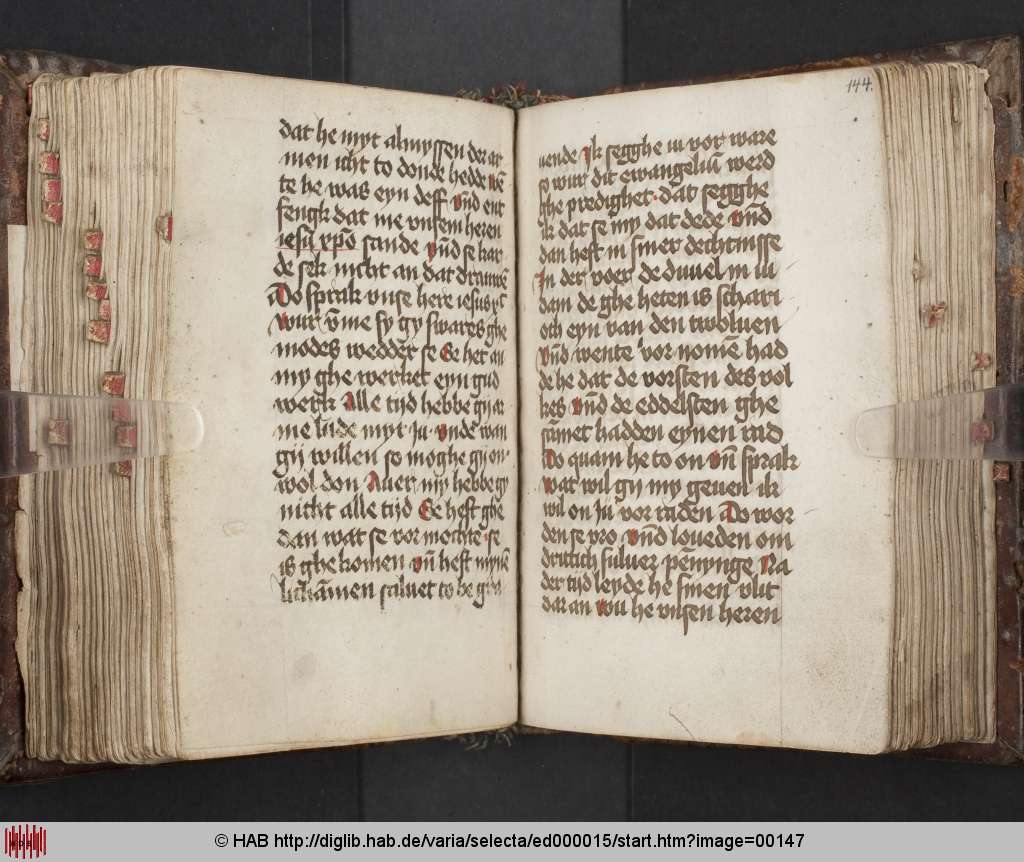 dat he myt almyssen der ar
men icht to donde hedde wē
te he was eyn deff vnd ent
fengk dat me vnsem heren
iesu xpō sande vnd se kar
de sek nicht an dat drauwē
Do sprak vnse here iesus xt
wur v̄me sy gy swares ghe
modes wedder se Se het an
my ghe werket eyn gud
werk Alle tijd hebbe gij ar
me lude myt Ju vnde wan
gij willen so moghe gij on
wol don Auer my hebbe gy
nicht alle tijd Se heft ghe
dan wat se vor mochte se
is ghe komen vn̄ heft mynē
lichāmen saluet to be gra
144.
uende Jk segghe iu vor ware
so wur dit ewangeliū werd
ghe predighet dat segghe
ik dat se my dat dede vnd
dan heft in siner dechtnisse
In der voer de duuel in iu
dam de ghe heten is schari
och eyn van den twoluen
vnd wente vor nomē had
de he dat de vorsten des vol
kes vnd de eddelsten ghe
sāmet hadden eynen rad
do quam he to on vn̄ sprak
wat wil gij my geuen ik
wil on Ju vor raden Do wor
den se vro vnd loueden om
drittich suluer pēnynge Na
der tijd leyde he sinen vlit
dar an wu he vnsen heren
© HAB http://diglib.hab.de/varia/selecta/ed000015/start.htm?image=00147